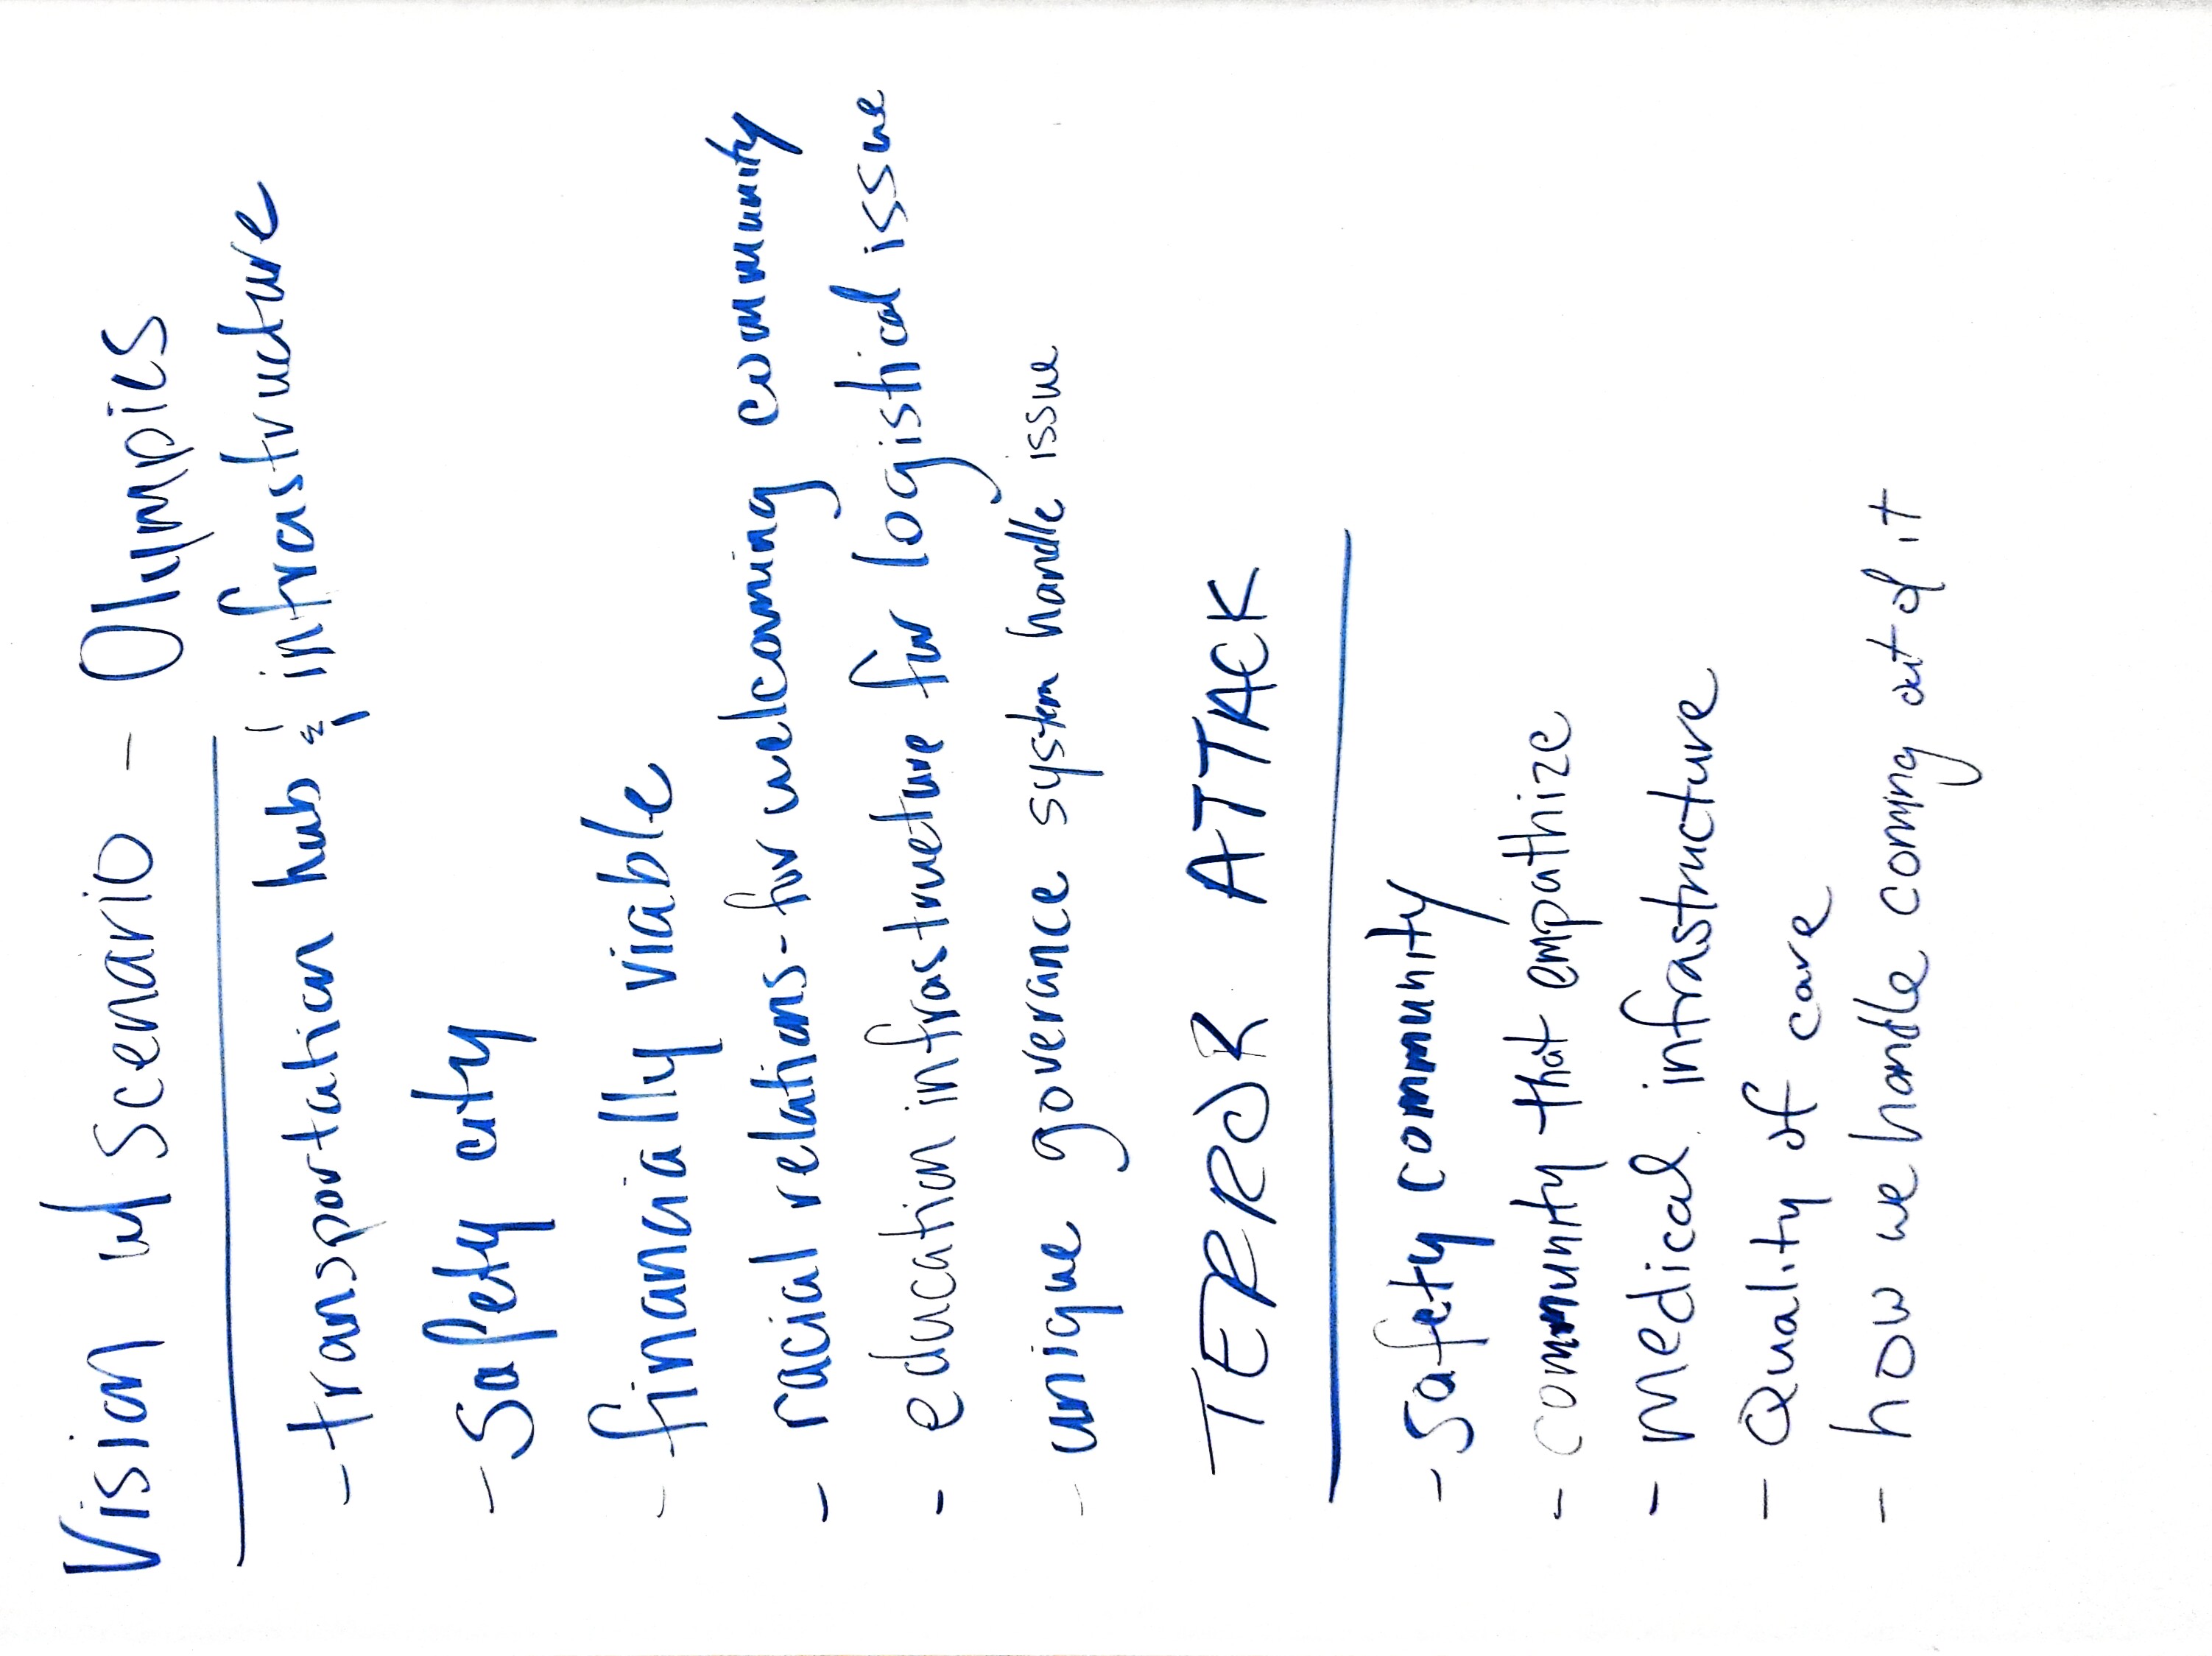 Vision w/ Scenario - Olympics
- transportation hub & infrastructure
- Safety city
- financially viable
- racial relations - for welcoming community
- education infrastructure for logistical issue
- unique governance system handle issue
TERROR ATTACK
- Safety community
- community that empathize
- medical infrastructure
- Quality of care
- how we handle coming out of it